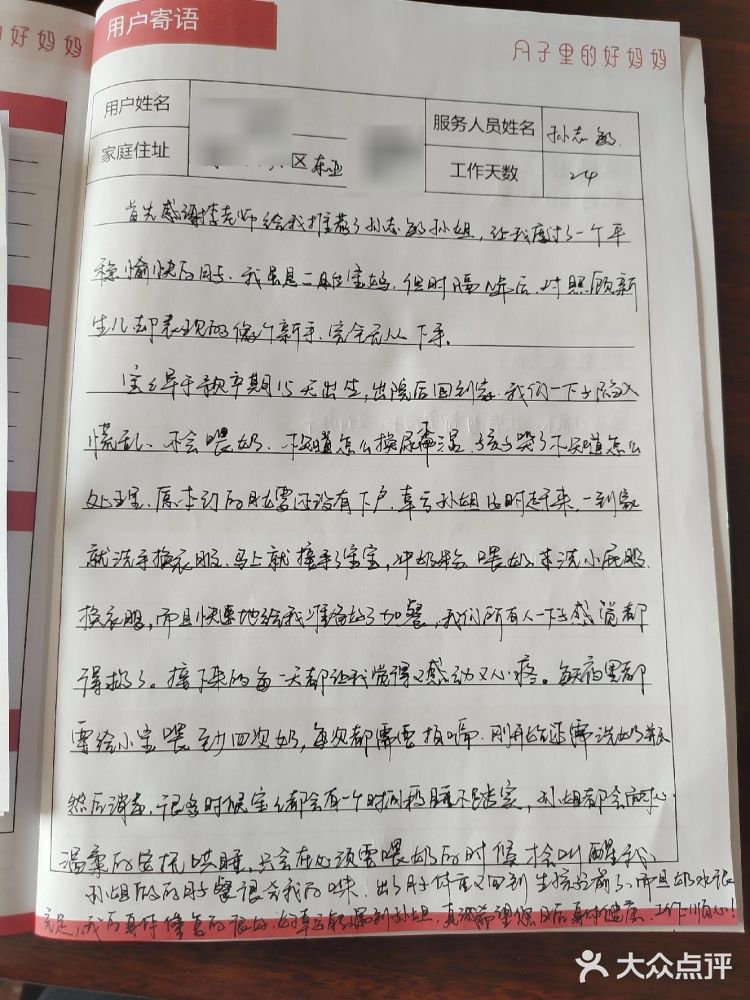 的好妈妈
用户寄语
月子里的好妈妈
用户姓名
服务人员姓名 孙志敏
家庭住址 区 东亚
工作天数 24
首先感谢李老师给我推荐了孙志敏孙姐，让我度过了一个平
稳愉快的月子。我虽是二胎宝妈，但时隔 年后，对照顾新
生儿却表现的像个新手，完全无从下手。
宝宝早于预产期15天出生，出院后回到家，我们一下子陷入
慌乱、不会喂奶、不知道怎么换尿布湿，孩子哭了不知道怎么
处理，原本订的月嫂还没有下户，幸亏孙姐及时赶来，一到家
就洗手换衣服，马上就接手了宝宝，冲奶粉、喂奶、洗小屁股、
换衣服，而且快速地给我准备好了加餐，我们所有人一下子感觉都
得救了。接下来的每一天都让我觉得又感动又心疼。每天夜里都
要给小宝喂至少四次奶，每次都需要拍嗝，刚开始还需洗奶瓶
然后消毒，很多时候宝宝都会有一个时间段睡不踏实，孙姐都会耐心
温柔的安抚哄睡，只会在必须要喂奶的时候才会叫醒我，
孙姐做的月子餐很合我的口味，出了月子体重又回到生孩子前了，而且奶水很
充足，我的身体修复的很好，好幸运能遇到孙姐，真诚希望您日后身体健康，工作顺心！
大众点评